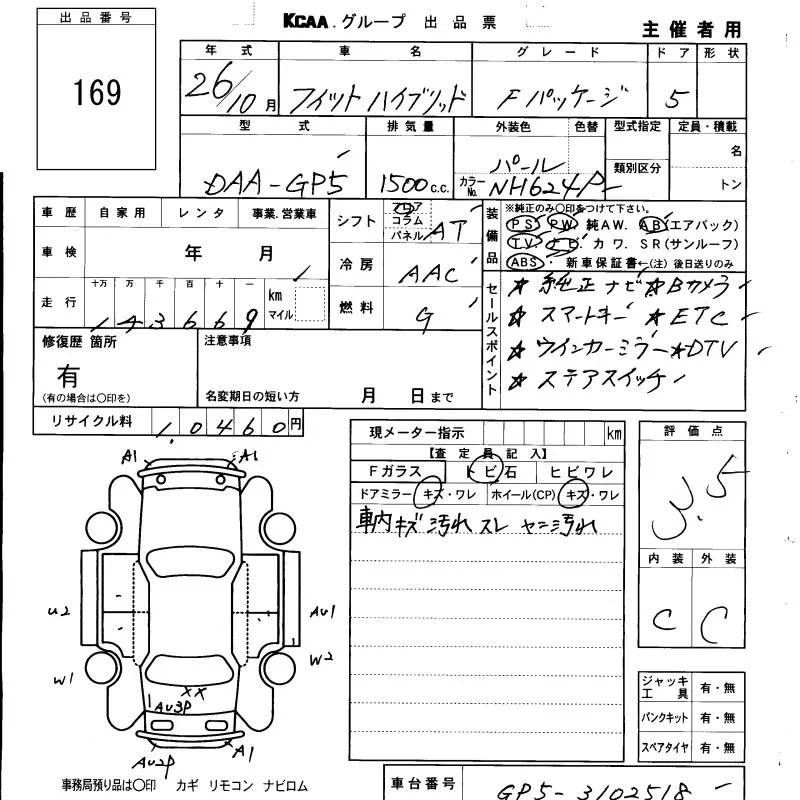 出品番号
169
KCAA.グループ 出品票
主催者用
年式 車名 グレード ドア 形状
26/10月 フィット ハイブリッド Fパッケージ 5
型式 排気量 外装色 色替 型式指定 定員・積載
DAA-GP5 1500c.c. パール 名
類別区分
カラーNo. NH624P トン
車歴 自家用 レンタ 事業.営業車
車検 年 月
走行 十万 万 千 百 十 一 km マイル
143669
シフト フロア コラム パネル AT
冷房 AAC
燃料 G
装備品
※純正のみ○印をつけて下さい。
PS PW 純AW. AB(エアバック)
TV ナビ カワ. SR(サンルーフ)
ABS 新車保証書←(注) 後日送りのみ
セールスポイント
☆ 純正ナビ ☆Bカメラ
☆ スマートキー ☆ETC
☆ ウインカーミラー ☆DTV
☆ ステアスイッチ
修復歴 箇所
有
(有の場合は○印を)
注意事項
名変期日の短い方 月 日まで
リサイクル料 1,0460円
現メーター指示 km
【査定員記入】
Fガラス トビ石 ヒビワレ
ドアミラー キズ・ワレ ホイール(CP) キズ・ワレ
車内キズ 汚れ スレ ヤニ汚れ
評価点
3.5
内装 外装
C C
A1 A1
U2 AU1
W1 W2
XX
AU3P
AU2P A1
ジャッキ工具 有・無
パンクキット 有・無
スペアタイヤ 有・無
事務局預り品は○印 カギ リモコン ナビロム
車台番号 GP5-3102518